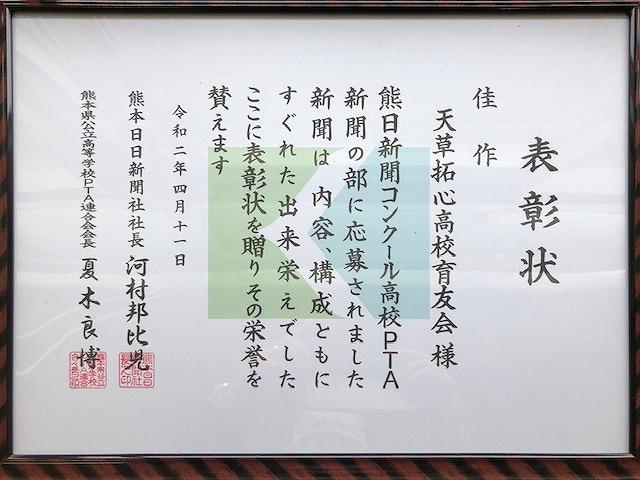 表彰状
佳作
天草拓心高校育友会様
熊日新聞コンクール高校PTA
新聞の部に応募されました
新聞は 内容、構成ともに
すぐれた出来栄えでした
ここに表彰状を贈り その栄誉を
賛えます
令和二年四月十一日
熊本日日新聞社社長 河村邦比児
熊本県公立高等学校PTA連合会会長 夏木良博